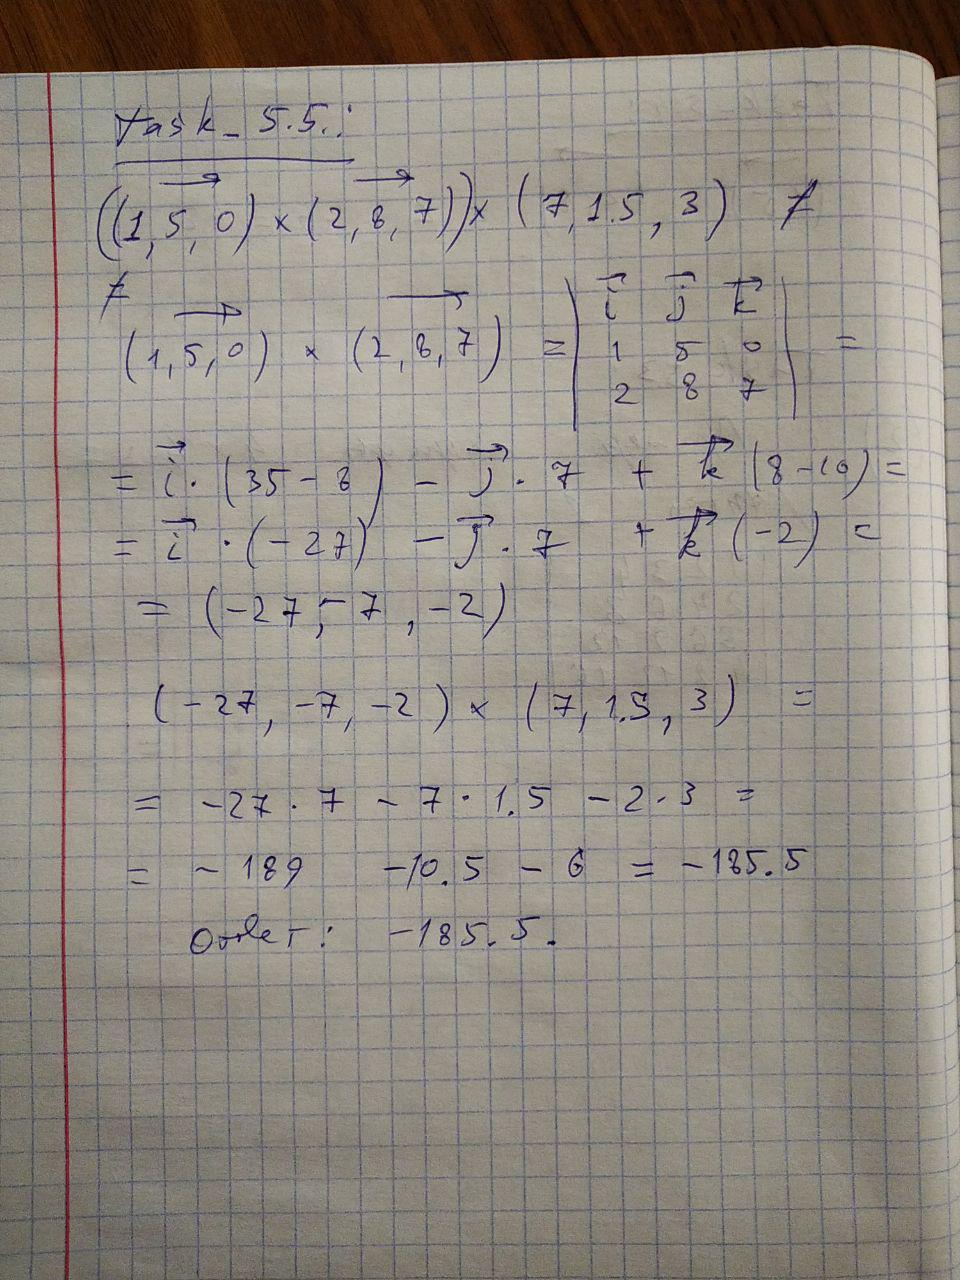 task_5.5.:
((1,5,0) × (2,8,7)) × (7,1.5,3) ≠
≠
(1,5,0) × (2,8,7) = | i j k | =
1 5 0
2 8 7
= i · (35 - 8) - j · 7 + k (8 - 10) =
= i · (-27) - j · 7 + k (-2) =
= (-27, -7, -2)
(-27, -7, -2) × (7, 1.5, 3) =
= -27 · 7 - 7 · 1.5 - 2 · 3 =
= - 189 -10.5 - 6 = -185.5
Ответ: -185.5.